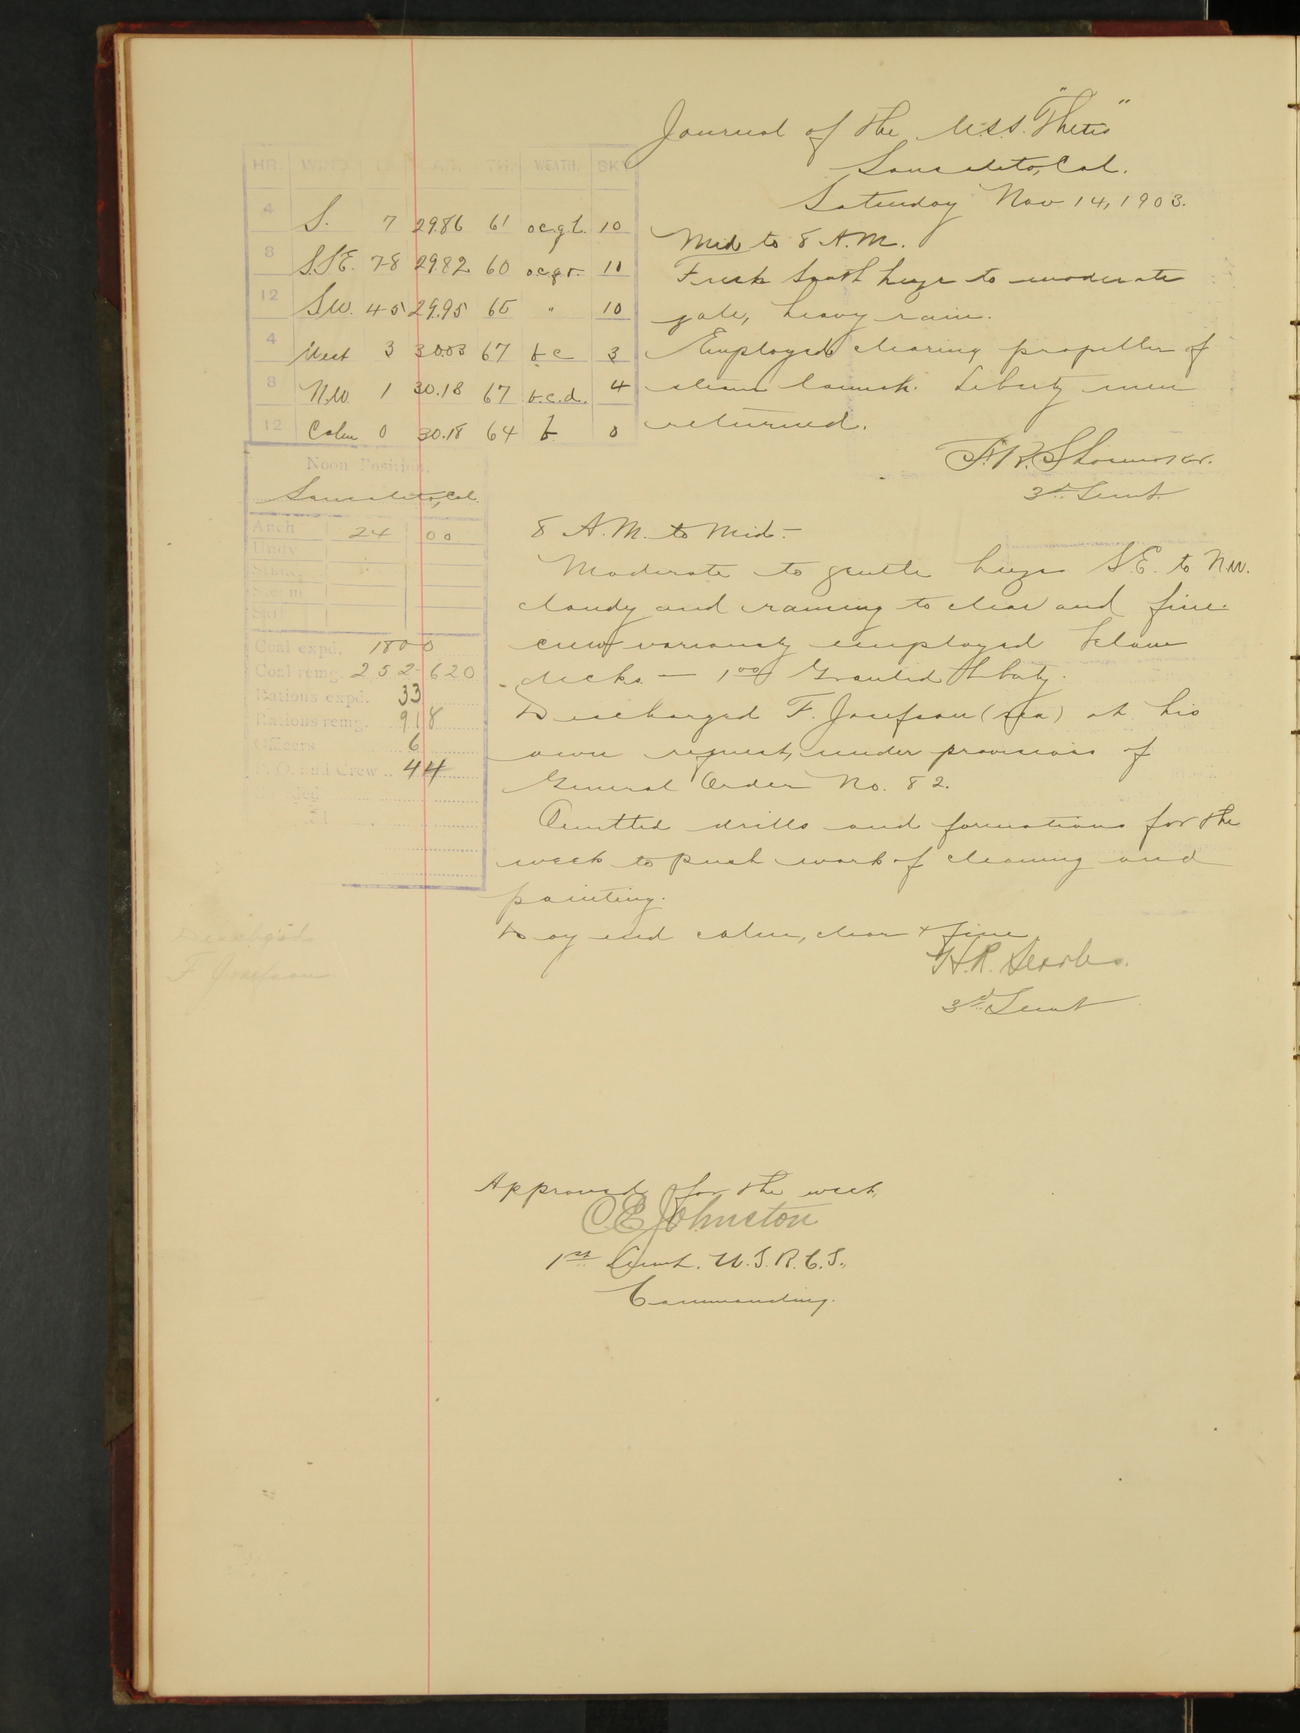 Journal of the U.S.S. "Thetis"
Sausalito, Cal.
Saturday Nov. 14, 1903.
HR. WIND BAR. TH. WEATH. SKY
4 S. 7 29.86 61 o.c.q.l. 10
8 S.S.E. 7-8 29.82 60 o.c.q.r. 10
12 S.W. 4-5 29.95 65 " 10
4 West 3 30.03 67 b c 3
8 N.W. 1 30.18 67 b.c.d. 4
12 Calm 0 30.18 64 b 0
Noon Position.
Sausalito, Cal.
Anch 24 00
Undw
Steam
Sail
Coal expd. 1800
Coal remg. 252-620
Rations expd. 33
Rations remg. 918
Officers 6
P. O. and Crew 44
Mid to 8 A.M.
Fresh South breeze to moderate
gale, heavy rain.
Employed clearing propeller of
steam launch. Liberty men
returned.
3d. Lieut
8 A.M. to Mid.-
Moderate to gentle breeze S.E. to N.W.
cloudy and raining to clear and fine.
crew variously employed below
decks — 1 00 Granted liberty.
Discharged F. Josefson (sea) at his
own request, under provisions of
General Order No. 82.
Omitted drills and formations for the
week to push work of cleaning and
painting.
Day end calm, clear & fine
H.R. Searles.
3d. Lieut
Discharged
F Josefson
Approved for the week,
C E Johnston
1st Lieut. U.S.R.C.S.,
Commanding.